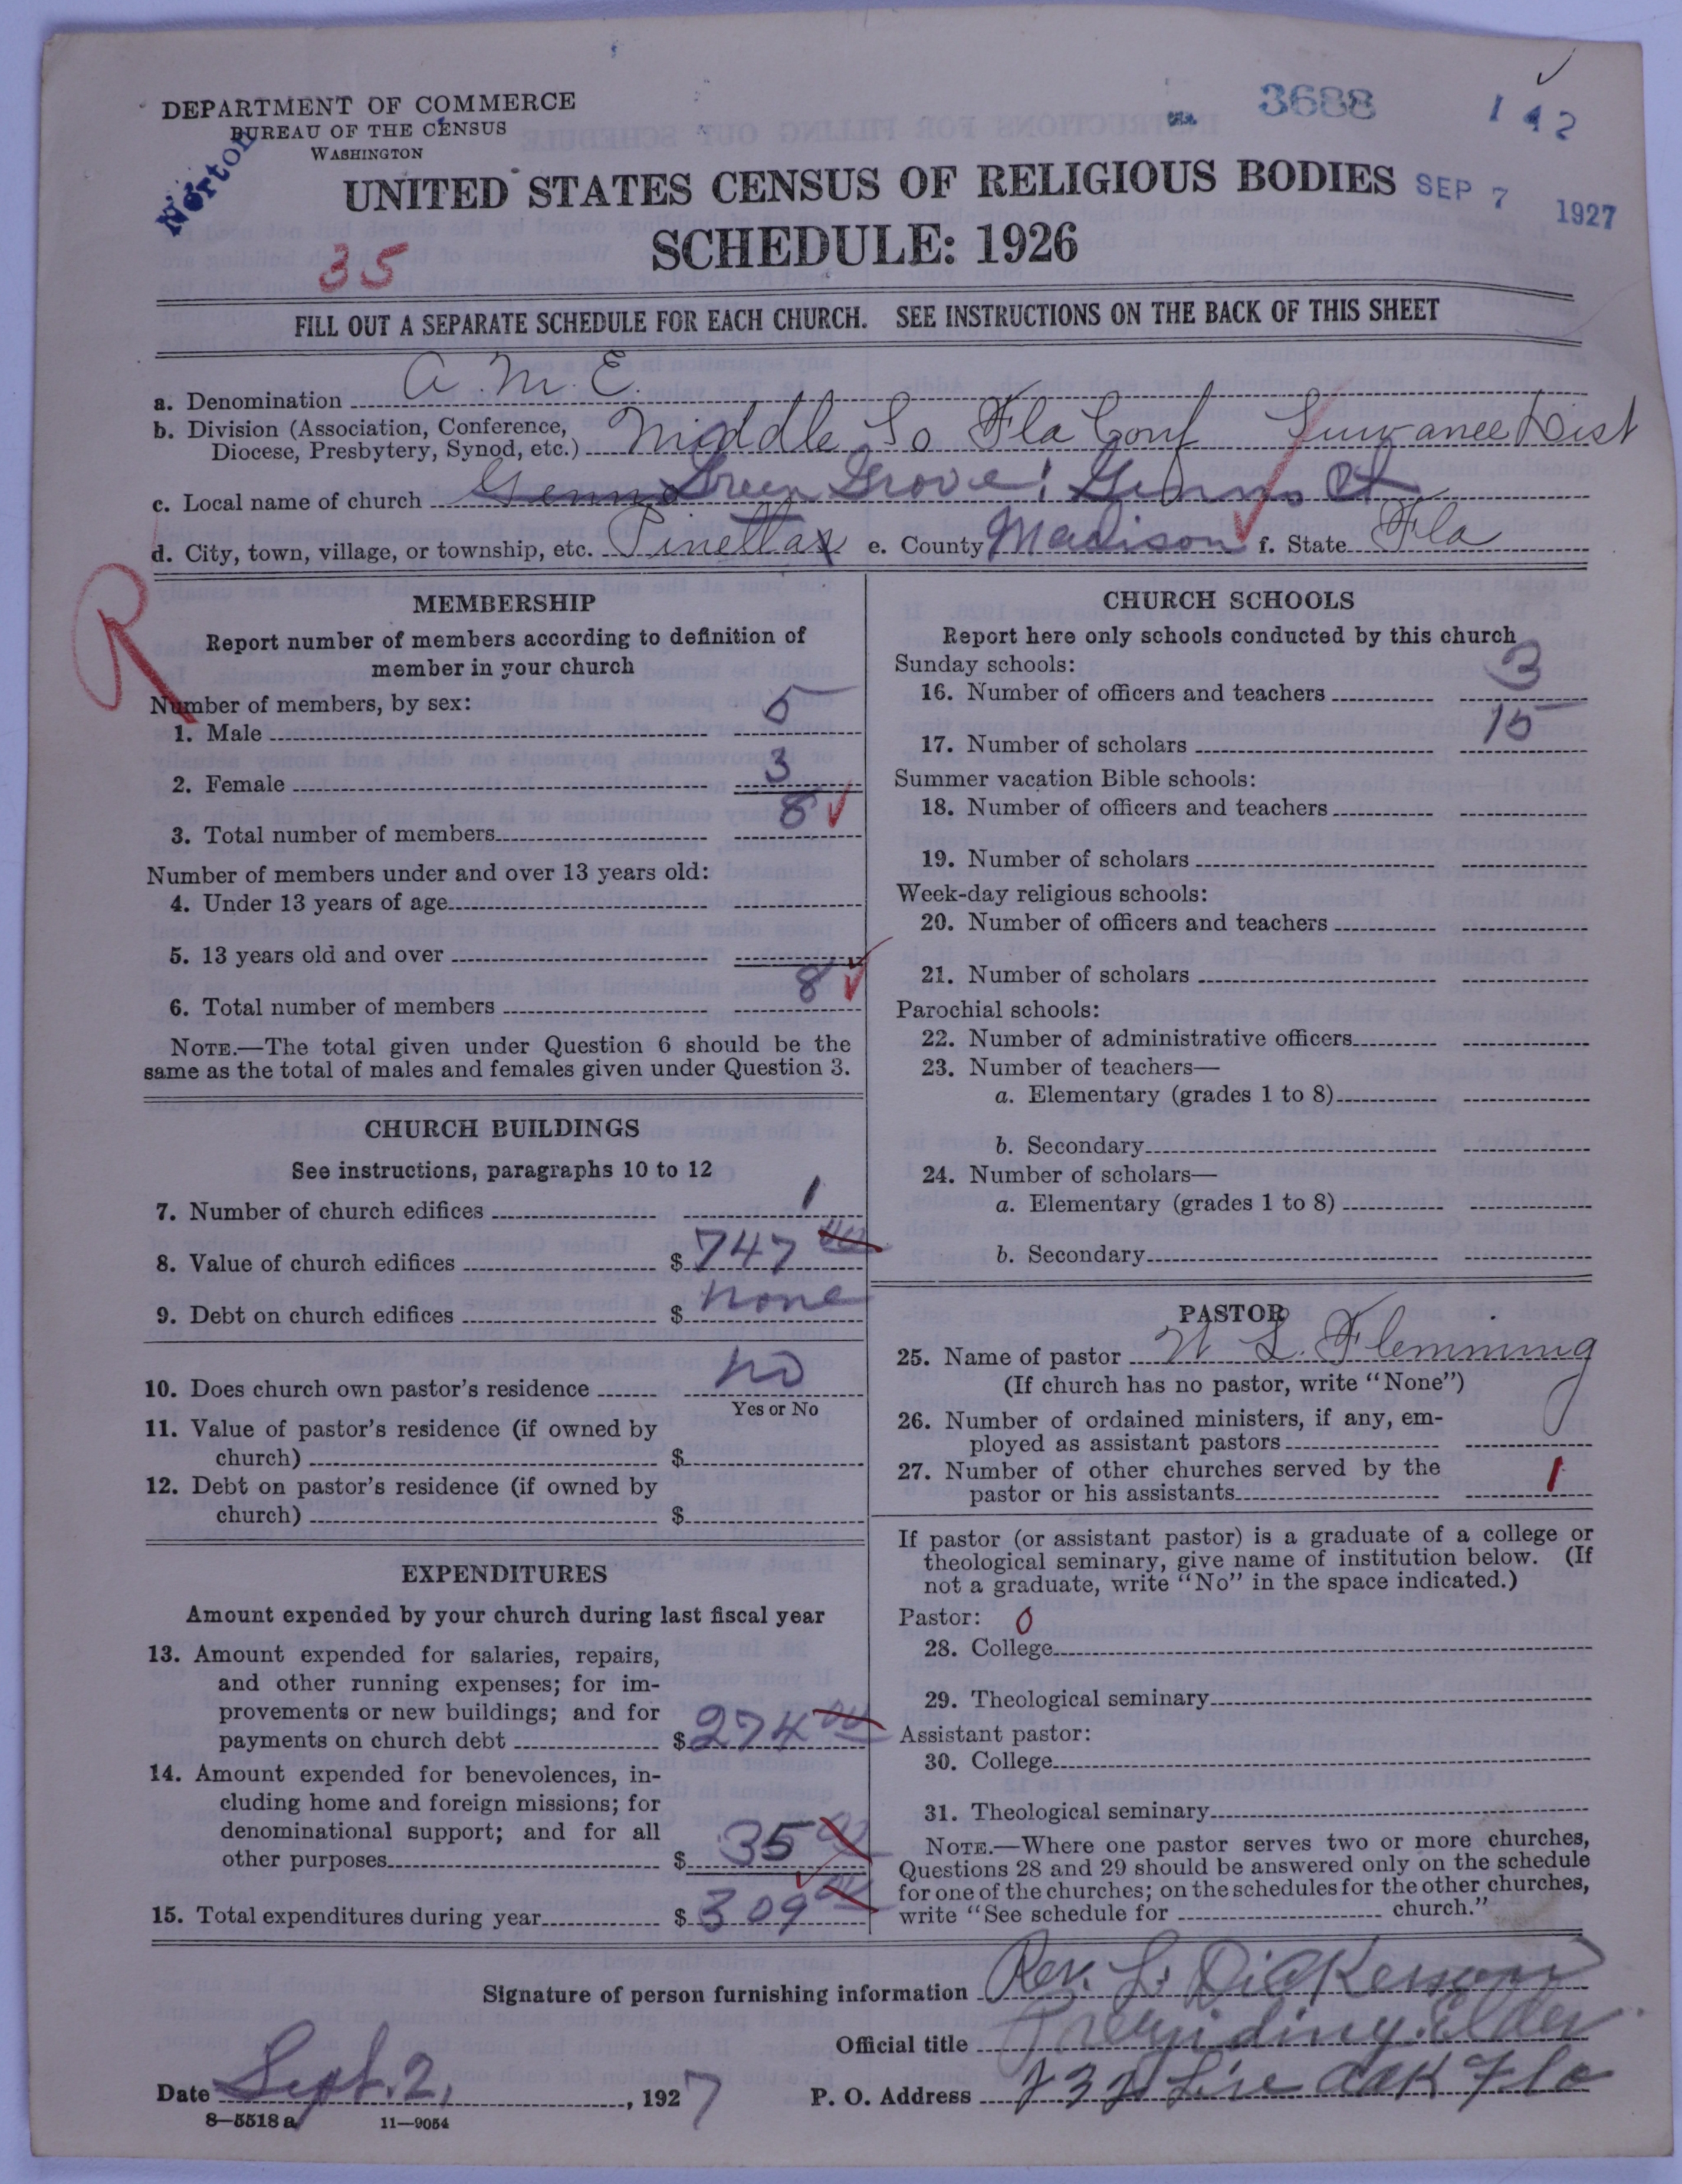 DEPARTMENT OF COMMERCE
BUREAU OF THE CENSUS
WASHINGTON
Norton
3688
142
UNITED STATES CENSUS OF RELIGIOUS BODIES
SEP 7 1927
SCHEDULE: 1926
35
FILL OUT A SEPARATE SCHEDULE FOR EACH CHURCH. SEE INSTRUCTIONS ON THE BACK OF THIS SHEET
a. Denomination A. M. E.
b. Division (Association, Conference, Diocese, Presbytery, Synod, etc.) Middle So Fla Conf Suwanee Dist
c. Local name of church Green Grove
d. City, town, village, or township, etc. Pinetta e. County Madison f. State Fla
R
MEMBERSHIP
Report number of members according to definition of
member in your church
Number of members, by sex:
1. Male 5
2. Female 3
3. Total number of members 8
Number of members under and over 13 years old:
4. Under 13 years of age
5. 13 years old and over
6. Total number of members 8
NOTE.—The total given under Question 6 should be the
same as the total of males and females given under Question 3.
CHURCH BUILDINGS
See instructions, paragraphs 10 to 12
7. Number of church edifices 1
8. Value of church edifices $ 747 00
9. Debt on church edifices $ none
10. Does church own pastor's residence no
Yes or No
11. Value of pastor's residence (if owned by
church) $
12. Debt on pastor's residence (if owned by
church) $
EXPENDITURES
Amount expended by your church during last fiscal year
13. Amount expended for salaries, repairs,
and other running expenses; for im-
provements or new buildings; and for
payments on church debt $ 274 00
14. Amount expended for benevolences, in-
cluding home and foreign missions; for
denominational support; and for all
other purposes $ 35 00
15. Total expenditures during year $ 309 00
CHURCH SCHOOLS
Report here only schools conducted by this church
Sunday schools:
16. Number of officers and teachers 3
17. Number of scholars 15
Summer vacation Bible schools:
18. Number of officers and teachers
19. Number of scholars
Week-day religious schools:
20. Number of officers and teachers
21. Number of scholars
Parochial schools:
22. Number of administrative officers
23. Number of teachers—
a. Elementary (grades 1 to 8)
b. Secondary
24. Number of scholars—
a. Elementary (grades 1 to 8)
b. Secondary
PASTOR
25. Name of pastor W L. Flemming
(If church has no pastor, write "None")
26. Number of ordained ministers, if any, em-
ployed as assistant pastors
27. Number of other churches served by the
pastor or his assistants 1
If pastor (or assistant pastor) is a graduate of a college or
theological seminary, give name of institution below. (If
not a graduate, write "No" in the space indicated.)
Pastor:
28. College 0
29. Theological seminary
Assistant pastor:
30. College
31. Theological seminary
NOTE.—Where one pastor serves two or more churches,
Questions 28 and 29 should be answered only on the schedule
for one of the churches; on the schedules for the other churches,
write "See schedule for church."
Signature of person furnishing information Rev. L. Dickerson
Official title Presiding Elder
Date Sept. 2, 1927 P. O. Address Live Oak Fla
8—5518 a 11—9054